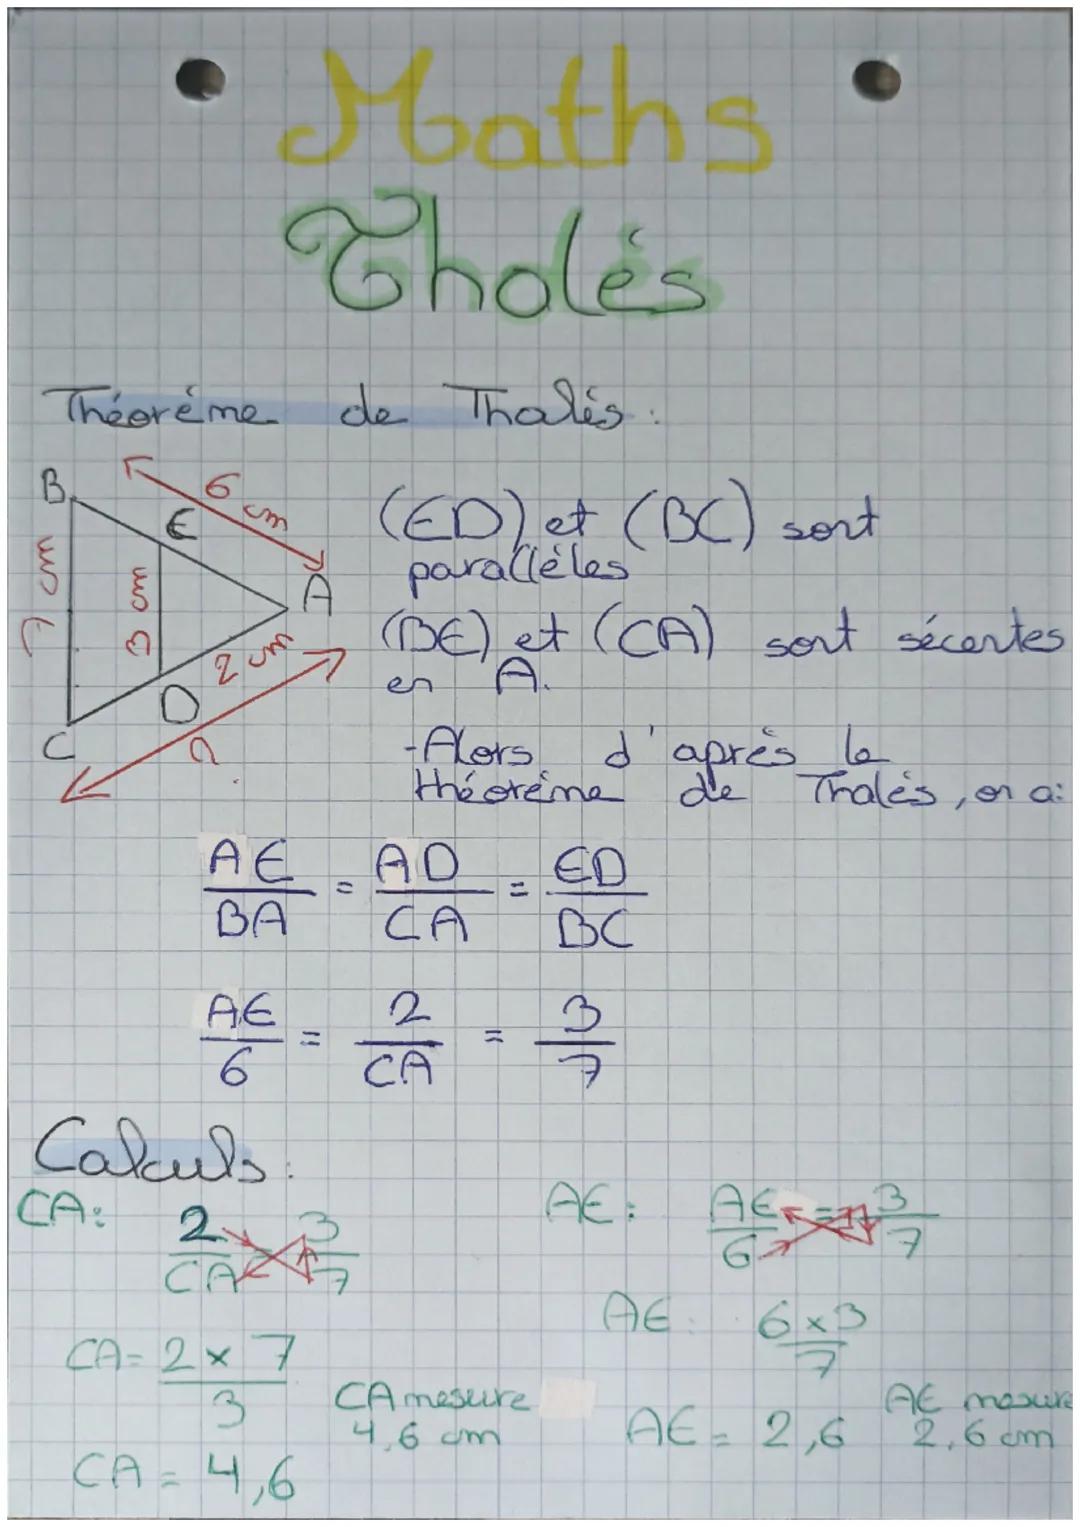 Maths
Thalés
Théoréme de Thalés :
B
6 cm
E
A
7 cm
3 cm
2 cm
D
C
?
(ED) et (BC) sont
paralléles
(BE) et (CA) sont sécantes
en A.
-Alors d'aprés le
théoréme de Thalés, on a:
AE/BA = AD/CA = ED/BC
AE/6 = 2/CA = 3/7
Calculs :
CA: 2/CA = 3/7
CA= 2 x 7/3
CA mesure
4,6 cm
CA = 4,6
AE: AE/6 = 3/7
AE: 6 x 3/7
AE = 2,6
AE mesure
2,6 cm